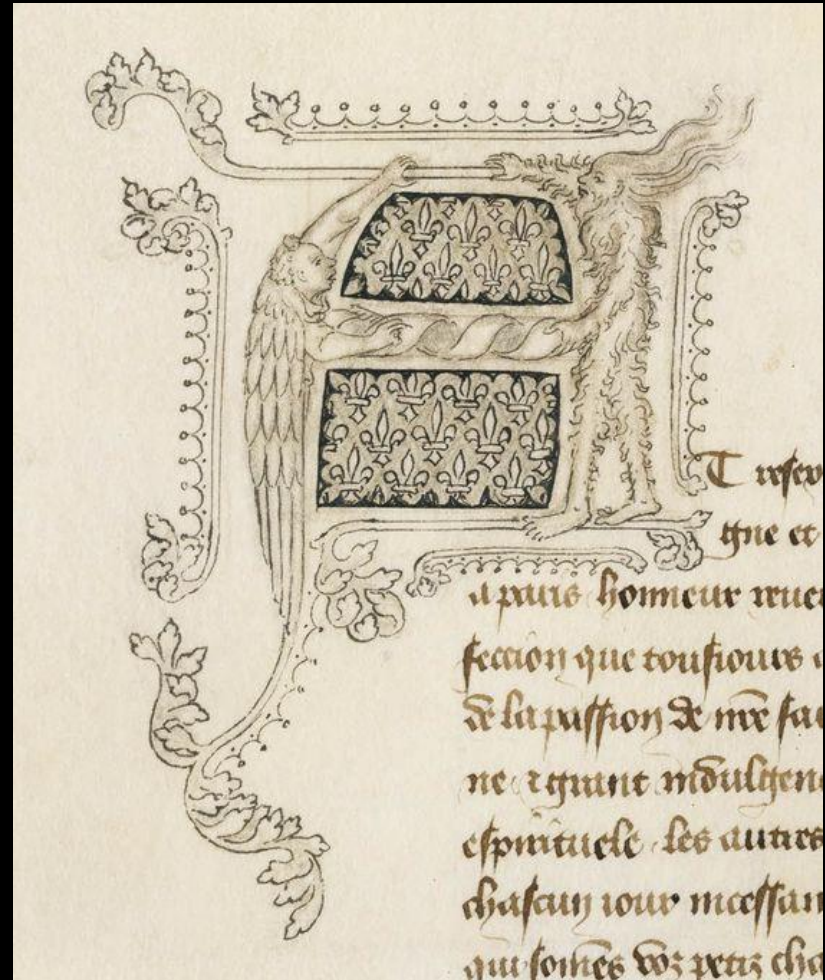 A Treſex
gne et
a paris honneur reuer
feccion que touſiours
de la paſſion de nr̄e ſau
ne ⁊ grant indulgen
eſpirituele les autres
chaſcun iour inceſſan
qui ſom̄es voz petiz cha